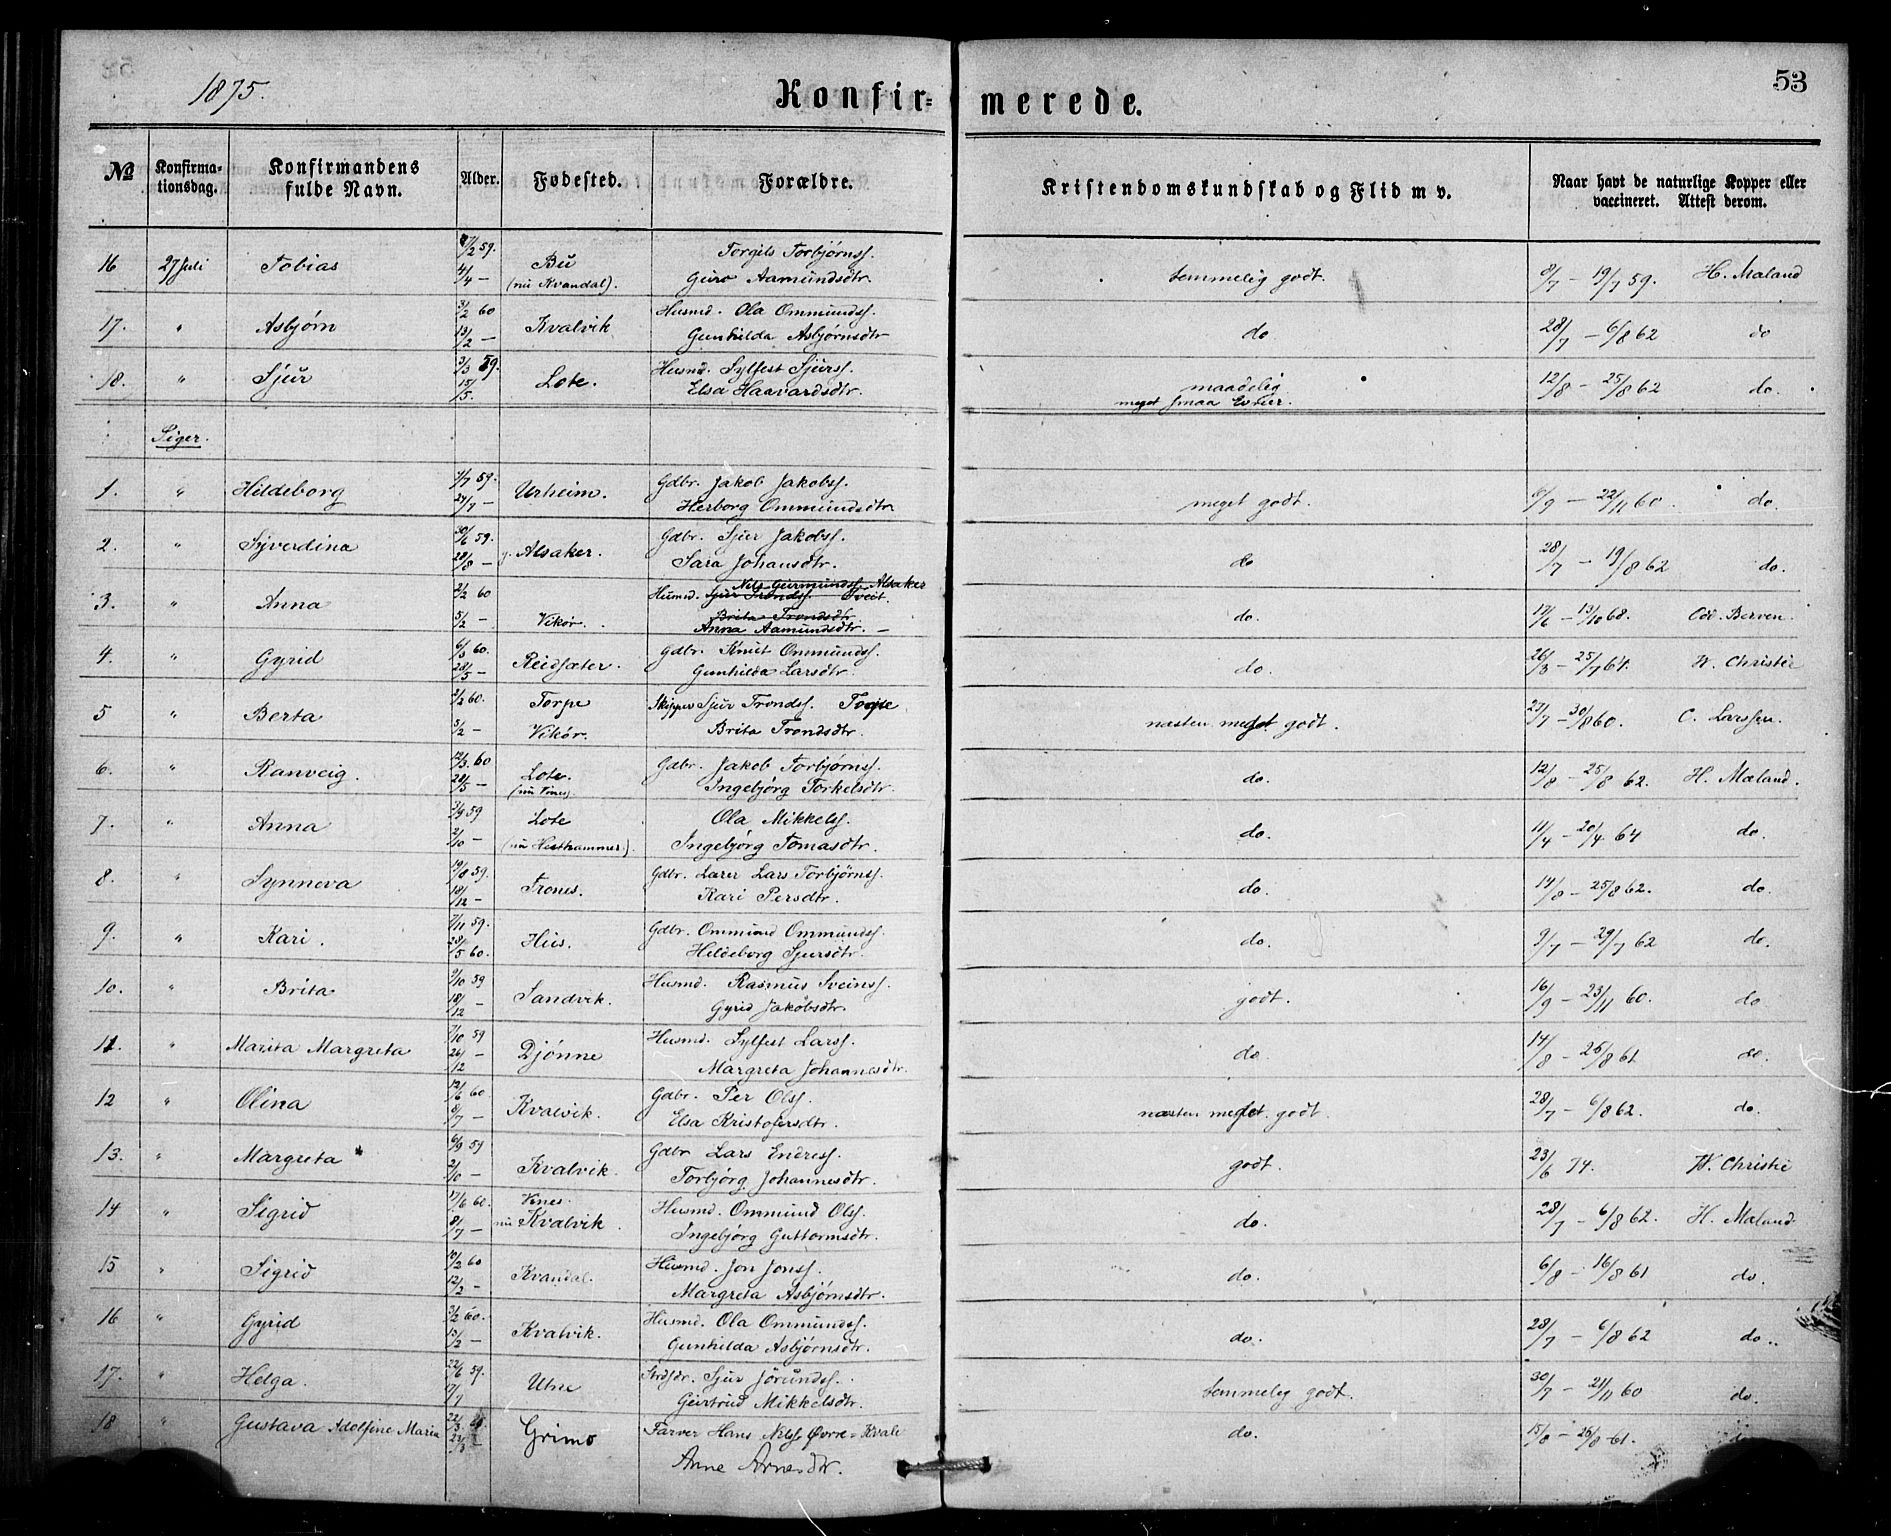 1875.
Konfirmerede.
53
№ Konfirmationsdag. Konfirmandens fulde Navn. Alder. Fodested. Forældre. Kristendomskundskab og Flid m v. Naar havt de naturlige Kopper eller vaccineret. Attest derom.
16 27 Juli Tobias /2 59. 4/4 — Bu (nu Kvandal). Torgils Torbjørnss. Guro Aamundsdtr. temmelig godt. 8/7 — 19/7 59. H. Mæland
17. " Asbjørn 3/2 60 13/2 — Kvalvik Husmd. Ola Ommundss. Gunhilda Asbjørnsdtr do 28/7 — 6/8 62 do
18. " Sjur 2/3 59. 15/5. Lote. Husmd. Sylfest Sjurss. Elsa Haavardsdtr. maadelig meget smaa Evner. 12/8 — 25/8 62 do.
Piger.
1. " Hildeborg 1/7 59. 24/7 — Urheim. Gdbr. Jakob Jakobss. Herborg Ommundsdtr meget godt. 6/9 — 22/11 60. do.
2. " Syverdina 30/6 59. 28/8 — Alsaker. Gdbr. Sjur Jakobss. Sara Johansdtr. do 28/7 — 19/8 62 do.
3. " Anna 2/2 60 5/2 — Vikør. Husmd. Nils Geirmundss. Alsaker Sjur Trondss. Tveit. Brita Trondsdtr Anna Aamundsdtr. — do. 17/6 — 13/10 68. Odd. Berven.
4. " Gyrid 6/3 60. 28/5 — Reidsæter. Gdbr. Knut Ommundss. Gunhilda Larsdtr. do. 26/3 — 25/7 64. W. Christie
5 " Berta 2/2 60. 5/2 — Torpe Vikør. Skipper Sjur Trondss. Torpe Brita Trondsdtr. næsten meget godt. 23/7 — 30/8 60. C. Larssen.
6. " Ranveig. 12/3. 60 28/5 — Lote. (nu Vines). Gdbr. Jakob Torbjørnss. Ingebjørg Torkelsdtr. do. 12/8 — 25/8 62. H. Mæland.
7. " Anna 3/9 59 2/10 — Lote (nu Hesthammer). Ola Mikkelss. Ingebjørg Tomasdtr. do. 11/4 — 20/4 64 do.
8. " Synneva 19/8 59. 18/12 — Trones. Gdbr. Lærer Lars Torbjørnss. Kari Persdtr. do. 14/8 — 25/8 62. do.
9. " Kari. 7/11 59. 28/5 60. Hus. Gdbr. Ommund Ommundss. Hildeborg Sjursdtr. do. 9/7 — 29/7 62 do.
10. " Brita 9/10 59 18/12 — Sandvik. Husmd. Rasmus Sveinss. Gyrid Jakobsdtr. godt. 16/9 — 23/11 60. do
11. " Marita Margreta 7/10 59 26/12 — Djønne Husmd. Sylfest Larss. Margreta Johannesdtr. do. 14/8 — 26/8 61. do.
12 " Olina 12/6 60 8/7 — Kvalvik. Gdbr. Per Olss. Elsa Kristofersdtr. næsten meget godt. 28/7 — 6/8 62. do.
13. " Margreta 6/9 59 2/10 — Kvalvik. Gdbr Lars Endress. Torbjørg Johannesdtr. godt. 23/6 74. W. Christie
14 " Sigrid 17/6 60. 8/7 — Vines. nu Kvalvik. Husmd. Ommund Olss. Ingebjørg Guttormsdtr. do. 28/7 — 6/8 62. H. Mæland
15 " Sigrid 10/2 60 12/2 — Kvandal. Husmd. Jon Jonss. Margreta Asbjørnsdtr. do. 6/8 — 16/8 61 do.
16 " Gyrid 3/2 60. 13/2 — Kvalvik. Husmd. Ola Ommundss. Gunhilda Asbjørnsdtr. do. 28/7 — 6/8 62 do.
17. " Helga. 22/6 59. 17/7 Utne Strdsdr. Sjur Jørundss. Geirtrud Mikkelsdtr. temmelig godt. 30/7 — 21/11 60 do.
18 " Gustava Adolfine Maria 22/3. 23/3 Grimo Farver Hans Nilss Øvre-Kvale Anne Arnesdtr. do. 15/8 — 26/8 61.